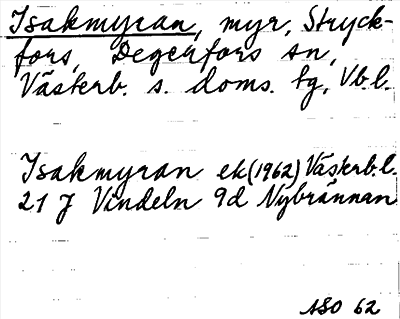 Isakmyran, myr, Stryck-
fors, Degerfors sn,
Västerb. s. doms. tg, Vb.l.
Isakmyran ek (1962) Västerb.l.
21 J Vindeln 9d Nybrännan
ASO 62